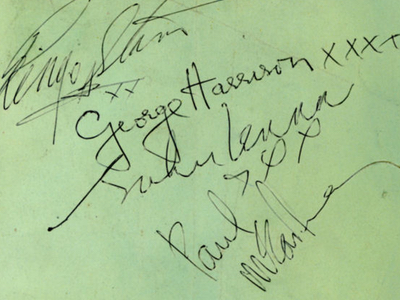 Ringo Starr
xx
George Harrison xxx+
John Lennon
xxx
Paul
McCartney